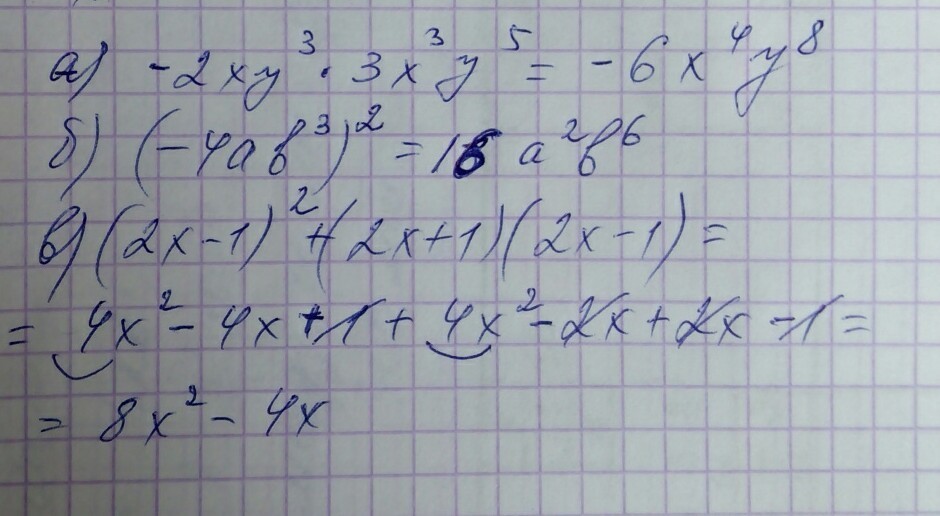 а) -2xy³ · 3x³y⁵ = -6x⁴y⁸
б) (-4ab³)² = 16 a²b⁶
в) (2x-1)² + (2x+1)(2x-1) =
= 4x² - 4x + 1 + 4x² - 2x + 2x - 1 =
= 8x² - 4x